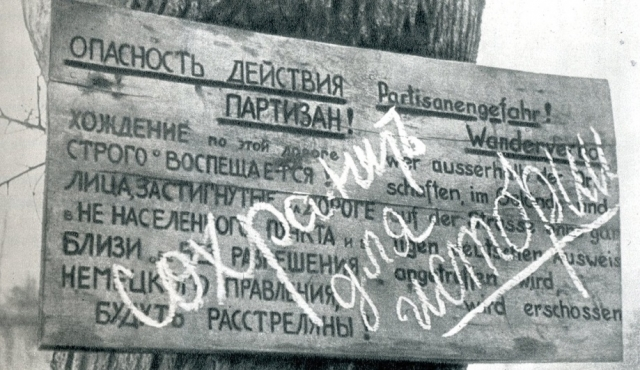 ОПАСНОСТЬ ДЕЙСТВИЯ
ПАРТИЗАН!
ХОЖДЕНИЕ по этой дороге
СТРОГО ВОСПЕЩАЕТСЯ!
ЛИЦА, ЗАСТИГНУТЫЕ ДОРОГЕ
в НЕ НАСЕЛЕННОГО ПУНКТА и в
БЛИЗИ РАЗРЕШЕНИЯ
НЕМЕЦКОГО ПРАВЛЕНИЯ,
БУДУТЬ РАССТРЕЛЯНЫ!
Partisanengefahr!
Wanderverbo
wer ausserhalb der Or
schaften, im Gelände und
auf der Strasse ohne gül
tigen deutschen Ausweis
angetroffen wird,
wird erschossen
сохранить
для
истории